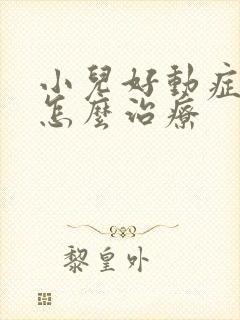 小兒好動症
怎麼治療
黎皇外